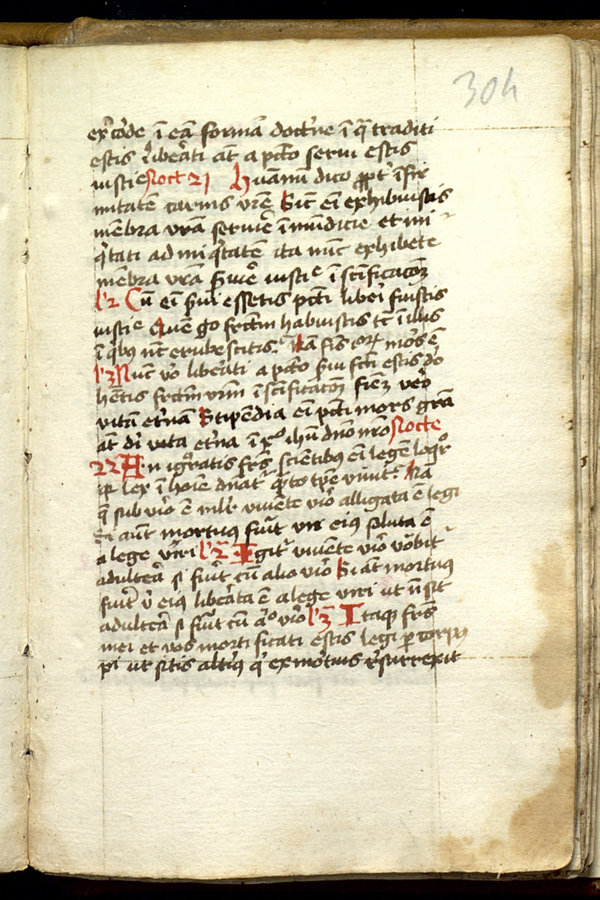 304
ex corde ī eā formā doctͥne ī qͣ traditi
estis liberati aūt a pctō serui estis
iusticie Noct 21 Humanū dico ꝓpt̾ īfir
mitatē carnis vrē Sic̄ eī exhibuistis
mēbra vrā seruire īmūdicie et ini
qͥtati ad iniqͥtatē ita nūc exhibete
mēbra vrā s̄uire iustie ī scīficacōꝫ
l'2 Cū eī s̄ui essetis pcti liberi fuistis
iustie Quē go fructū habuistis tc̄ ī illis
ī qͥbꝫ nc̄ erubescitis. Nā fīs illoꝝ mors ē
l'3 Nūc vͦo liberati a pctō s̄ui fcti estis do
hētis fructm vrm ī scīficatōꝫ finē vero
vitā etͥnā Stipendia eī pcti mors grā
aūt di vita etͥna ī xͦ ihū dno nro Nocte
22 An ignoratis frs sciētibꝫ eī legē loqͦr
qꝛ lex ī hoīe dnāt̾ qͣto tꝑe viuit Nā
q̄ sub viro ē mlr̾ viuēte viro alligata ē legi
si aūt mortuꝰ fuit vir eiꝰ soluta ē
a lege viri l'2 Igit̾ viuēte viro vocabit̾
adultera si fuit cū alio viro Si aūt mortuꝰ
fuit vir eiꝰ liberata ē a lege viri ut nō sit
adultera si fuit cū aͦ viro l'3 Itaqꝫ frs
mei et vos mortificati estis legi ꝑ corpꝰ
xpi ut sitis altiꝰ qͥ ex mortuis resurrexit